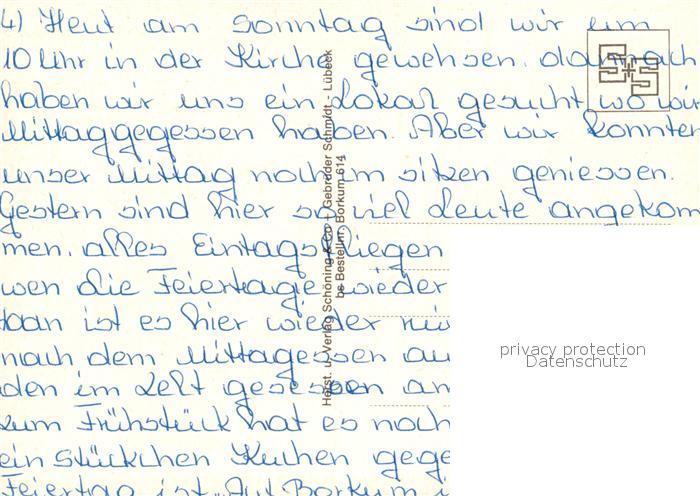 4) Heut am Sonntag sind wir um
10 Uhr in der Kirche gewehsen. dannach
haben wir uns ein Lokal gesucht wo wir
Mittaggegessen haben. Aber wir konnten
unser Mittag noch im sitzen geniessen.
Gestern sind hier so viel Leute angekom
men. alles Eintagsfliegen
wen die Feiertage wieder
dan ist es hier wieder
nach dem Mittagessen
den im Zelt gesessen an
zum Frühstück hat es noch
ein stückchen Kuchen gege
Feiertag ist. Auf Borkum i
Horst. u. Verlag Schöning & Co + Gebrüder Schmidt - Lübeck
Bestellnr. Borkum 614
privacy protection
Datenschutz